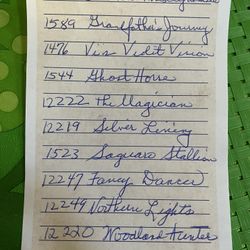 1589 Grandfather's Journey
1476 Vis Vidit Vision
1544 Ghost Horse
12222 The Magician
12219 Silver Lining
1523 Saguaro Stallion
12247 Fancy Dancer
12249 Northern Lights
12220 Woodland Hunter